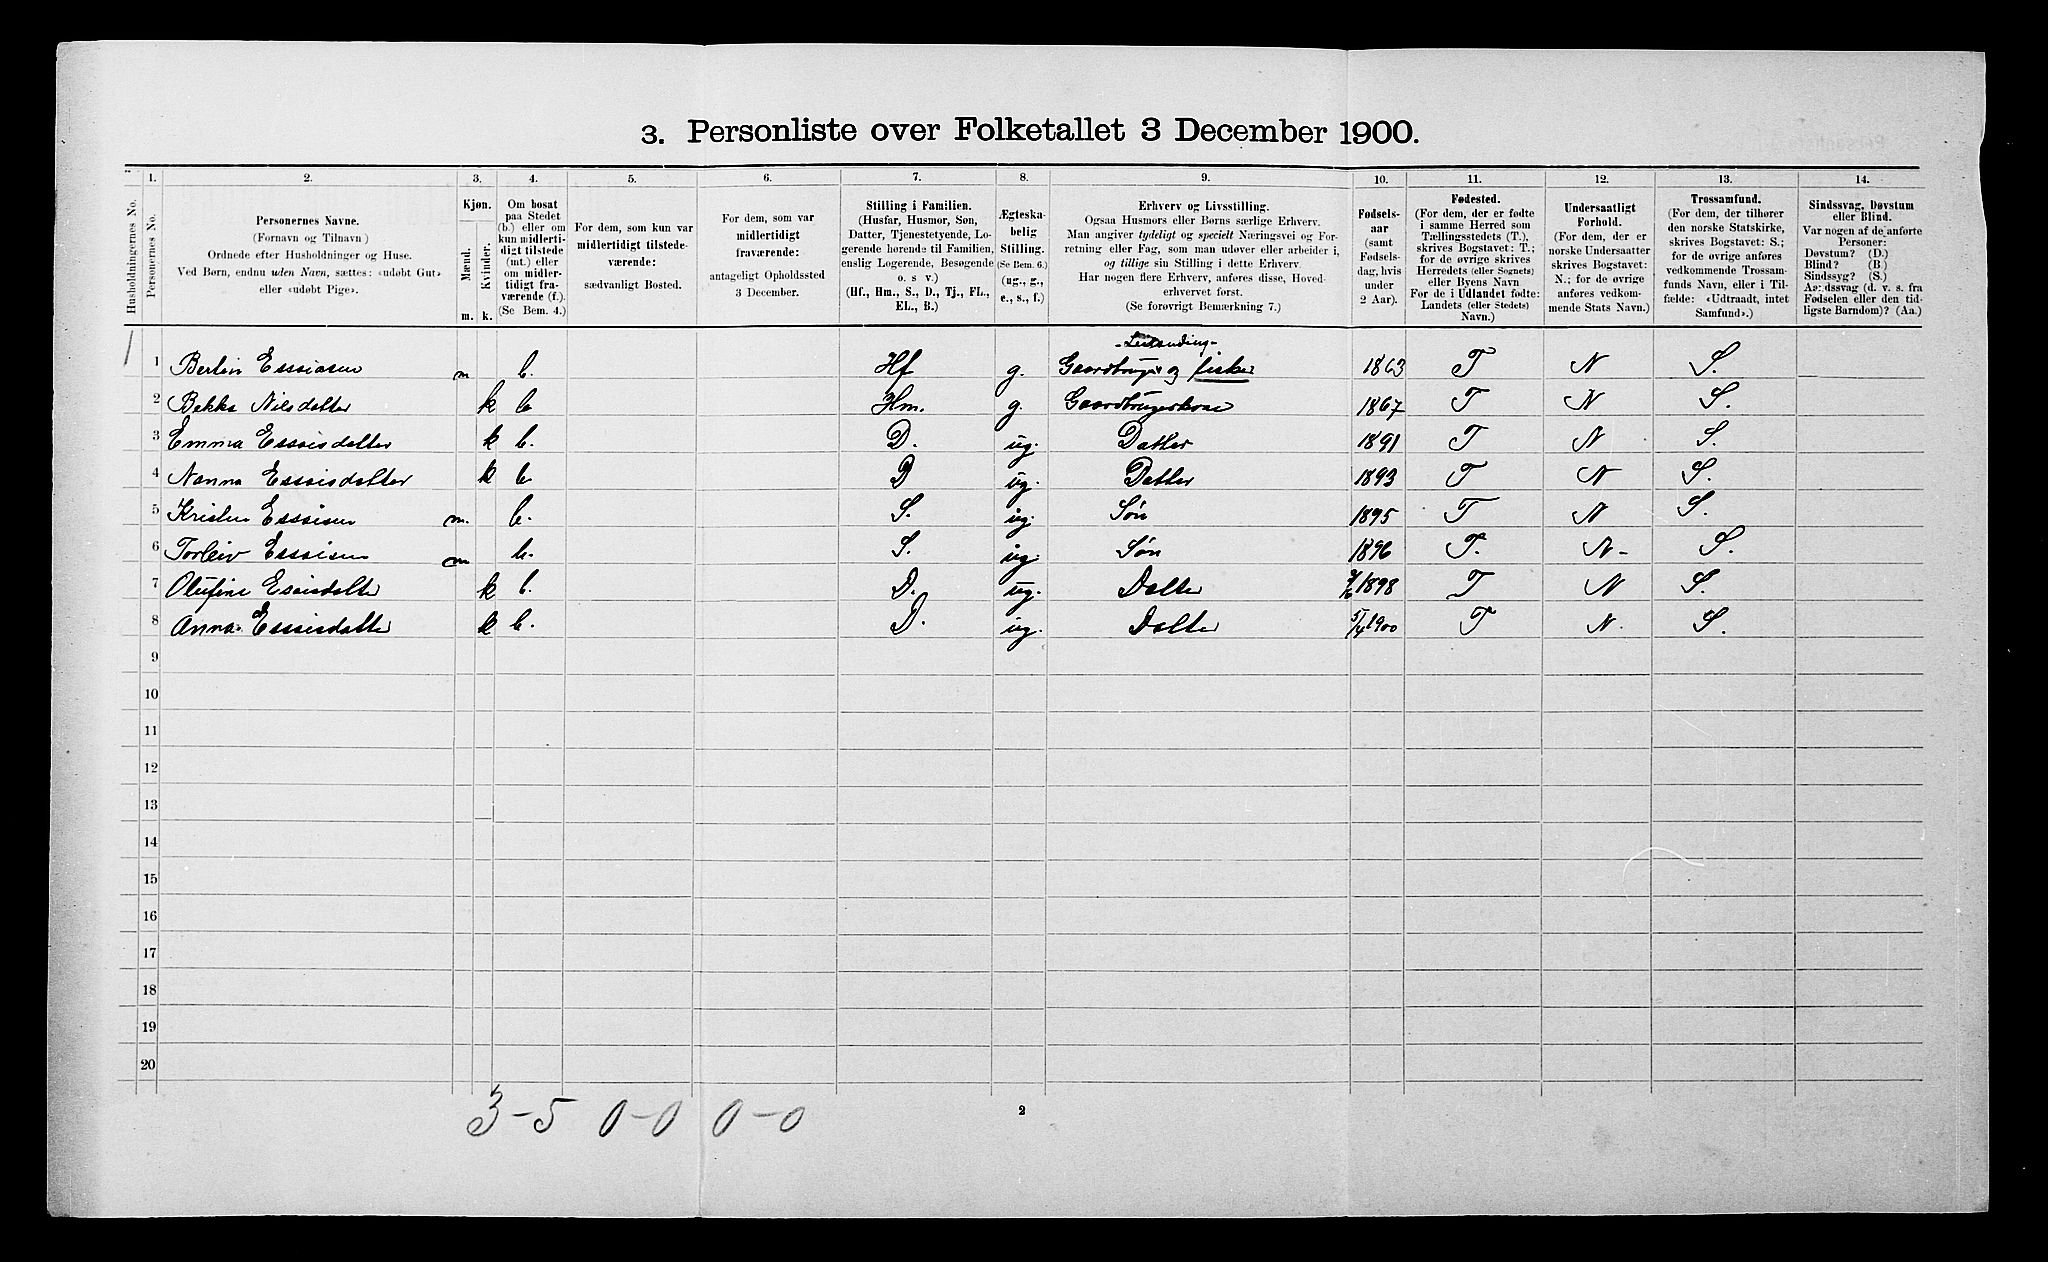 3. Personliste over Folketallet 3 December 1900.
1. 2. 3. 4. 5. 6. 7. 8. 9. 10. 11. 12. 13. 14.
Husholdningernes No.
Personernes No.
Personernes Navne.
(Fornavn og Tilnavn)
Ordnede efter Husholdninger og Huse.
Ved Børn, endnu uden Navn, sættes: «udøbt Gut»
eller «udøbt Pige».
Kjøn.
Mænd.
Kvinder.
m. k.
Om bosat
paa Stedet
(b.) eller om
kun midlerti-
digt tilstede
(mt.) eller
om midler-
tidigt fra-
værende (f.).
(Se Bem. 4.)
For dem, som kun var
midlertidigt tilstede-
værende:
sædvanligt Bosted.
For dem, som var
midlertidigt
fraværende:
antageligt Opholdssted
3 December.
Stilling i Familien.
(Husfar, Husmor, Søn,
Datter, Tjenestetyende, Lo-
gerende hørende til Familien,
enslig Logerende, Besøgende
o. s v.)
(Hf., Hm., S., D., Tj., FL.,
EL., B.)
Ægteska-
belig
Stilling.
(Se Bem. 6.)
(ug., g.,
e., s., f.)
Erhverv og Livsstilling.
Ogsaa Husmors eller Børns særlige Erhverv.
Man angiver tydeligt og specielt Næringsvei og For-
retning eller Fag, som man udøver eller arbeider i,
og tillige sin Stilling i dette Erhverv.
Har nogen flere Erhverv, anføres disse, Hoved-
erhvervet først.
(Se forøvrigt Bemærkning 7.)
Fødsels-
aar
(samt
Fødsels-
dag, hvis
under
2 Aar).
Fødested.
(For dem, der er fødte
i samme Herred som
Tællingsstedets (T.),
skrives Bogstavet: T.;
for de øvrige skrives
Herredets (eller Sognets)
eller Byens Navn
For de i Udlandet fødte:
Landets (eller Stedets)
Navn.)
Undersaatligt
Forhold.
(For dem, der er
norske Undersaatter
skrives Bogstavet:
N.; for de øvrige
anføres vedkom-
mende Stats Navn.)
Trossamfund.
(For dem, der tilhører
den norske Statskirke,
skrives Bogstavet: S.;
for de øvrige anføres
vedkommende Trossam-
funds Navn, eller i Til-
fælde: «Udtraadt, intet
Samfund».)
Sindssvag, Døvstum
eller Blind.
Var nogen af de anførte
Personer:
Døvstum? (D.)
Blind? (B.)
Sindssyg? (S.)
Aandssvag (d. v. s. fra
Fødselen eller den tid-
ligste Barndom)? (Aa.)
1 1 Bertin Essaiasen m b. Hf g. Gaardbruger og fisker 1863 T N S.
2 Bekka Nilsdatter k b Hm. g. Gaardbrugerkone 1867 T N S.
3 Emma Essaisdatter k b. D. ug. Datter 1891 T N S.
4 Nanna Essaisdatter k b D ug. Datter 1893 T N S.
5 Kristen Essaisen m. b. S. ug. Søn 1895 T N S.
6 Torleiv Essaisen m b. S. ug. Søn 1896 T. N- S.
7 Olufine Esaisdatter k b. D. ug. Datter 1898 T N S.
8 Anna Essaisdatter k b. D. ug. Datter 5/4 1900 T N. S.
9
10
11
12
13
14
15
16
17
18
19
20
3-5 0-0 0-0
2